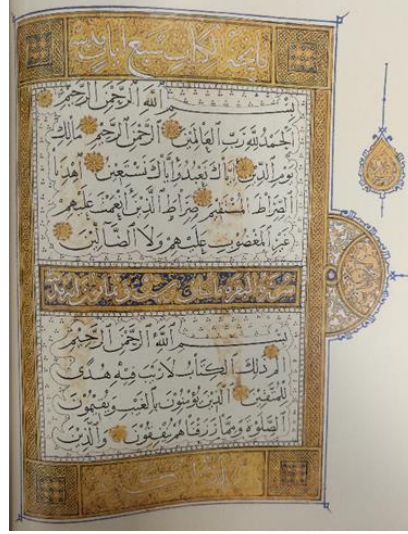 فاتحة الكتاب سبع ايات
بِسْمِ ٱللَّهِ ٱلرَّحْمَٰنِ ٱلرَّحِيمِ
اَلْحَمْدُ لِلَّهِ رَبِّ ٱلْعَالَمِينَ ٱلرَّحْمَٰنِ ٱلرَّحِيمِ مَالِكِ
يَوْمِ ٱلدِّينِ اِيَّاكَ نَعْبُدُ وَاِيَّاكَ نَسْتَعِينُ اِهْدِنَا
ٱلصِّرَاطَ ٱلْمُسْتَقِيمَ صِرَاطَ ٱلَّذِينَ اَنْعَمْتَ عَلَيْهِمْ
غَيْرِ ٱلْمَغْضُوبِ عَلَيْهِمْ وَلَا ٱلضَّالِّينَ
سورة البقرة
بِسْمِ ٱللَّهِ ٱلرَّحْمَٰنِ ٱلرَّحِيمِ
الم ذَٰلِكَ ٱلْكِتَابُ لَا رَيْبَ فِيهِ هُدًى
لِلْمُتَّقِينَ ٱلَّذِينَ يُؤْمِنُونَ بِٱلْغَيْبِ وَيُقِيمُونَ
ٱلصَّلَوٰةَ وَمِمَّا رَزَقْنَاهُمْ يُنْفِقُونَ وَٱلَّذِينَ